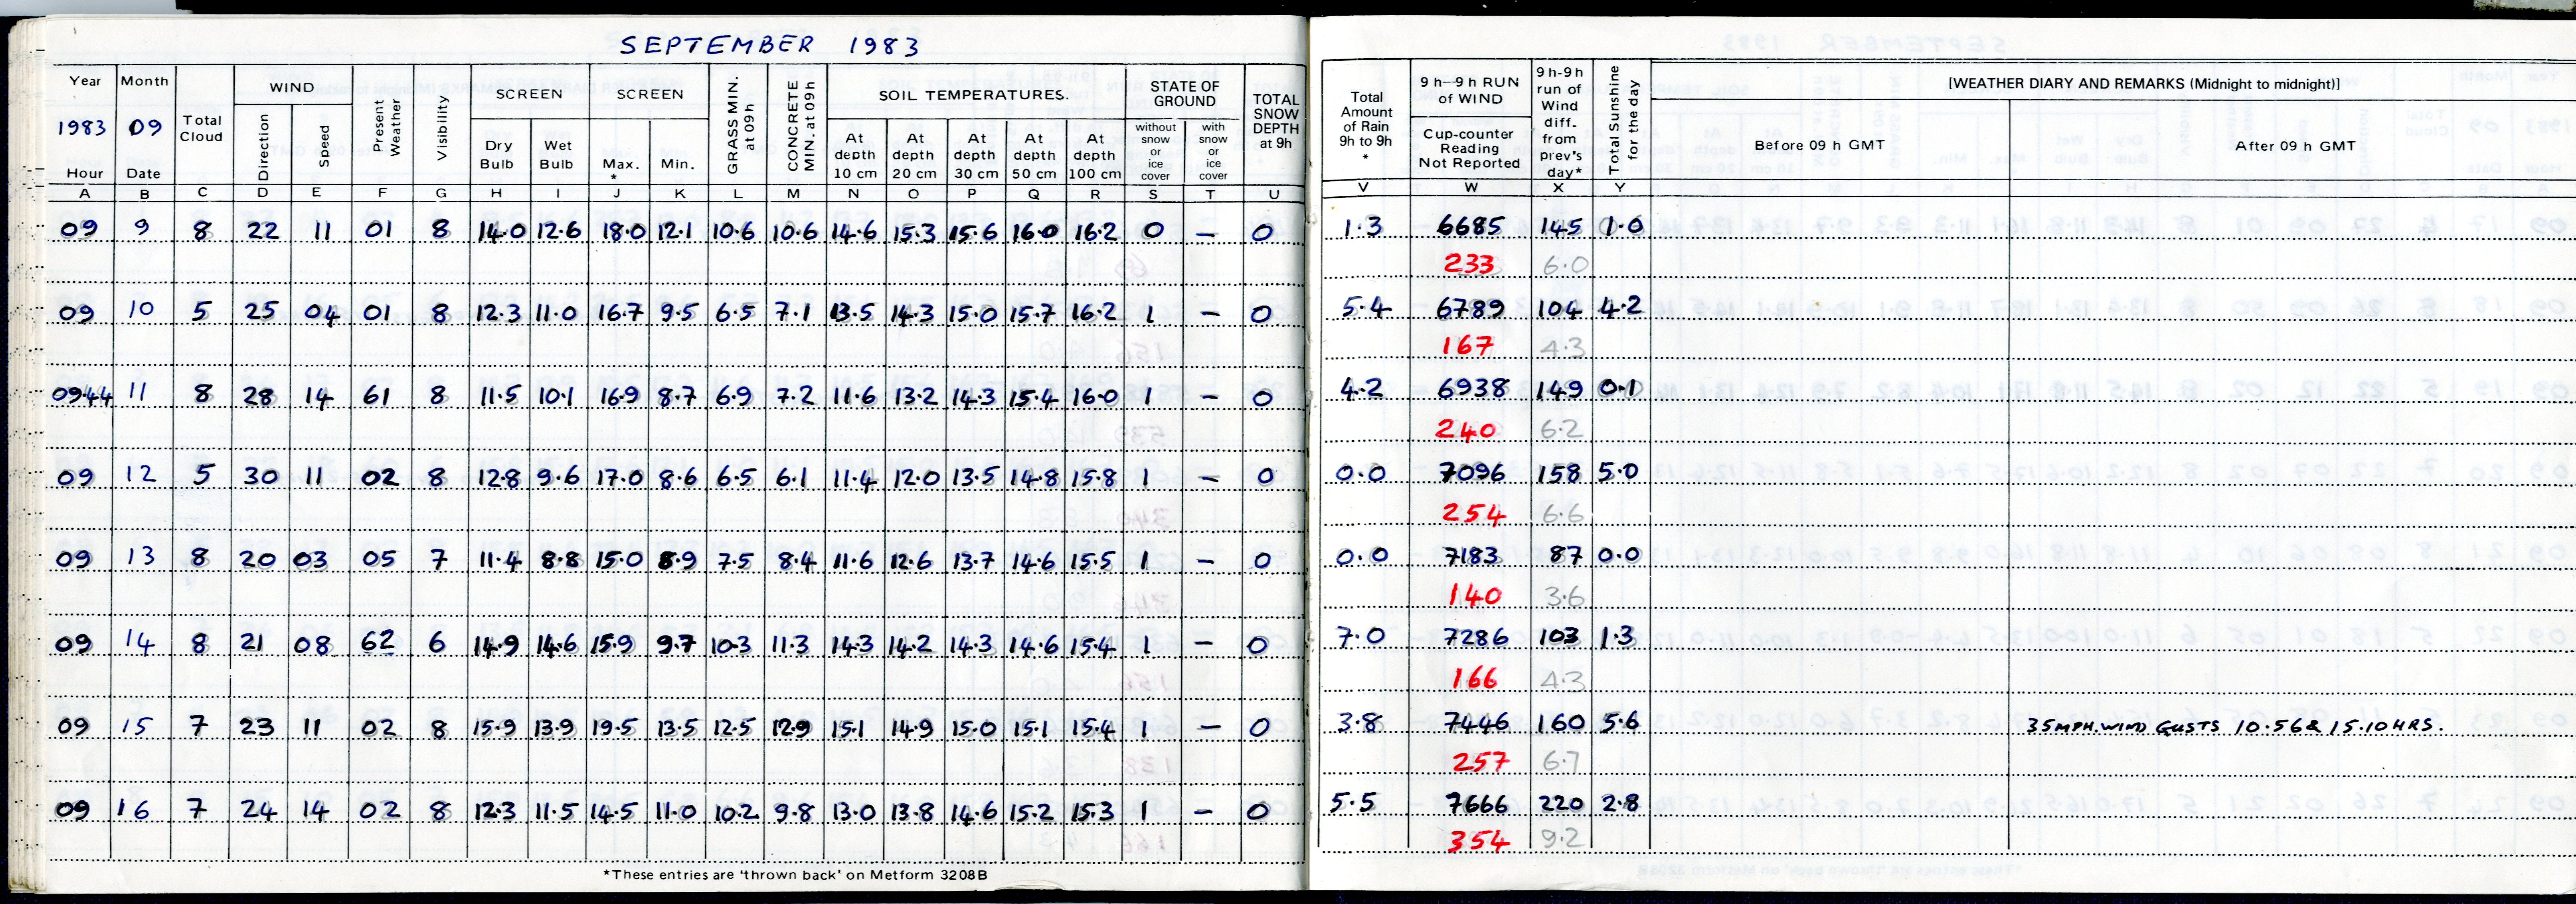 SEPTEMBER 1983
Year Month Total Cloud WIND Present Weather Visibility SCREEN SCREEN GRASS MIN. at 09h CONCRETE MIN. at 09h SOIL TEMPERATURES. STATE OF GROUND TOTAL SNOW DEPTH at 9h
1983 09 Direction Speed Dry Bulb Wet Bulb Max. * Min. At depth 10 cm At depth 20 cm At depth 30 cm At depth 50 cm At depth 100 cm without snow or ice cover with snow or ice cover
Hour Date
A B C D E F G H I J K L M N O P Q R S T U
09 9 8 22 11 01 8 14.0 12.6 18.0 12.1 10.6 10.6 14.6 15.3 15.6 16.0 16.2 0 — 0
09 10 5 25 04 01 8 12.3 11.0 16.7 9.5 6.5 7.1 13.5 14.3 15.0 15.7 16.2 1 — 0
0944 11 8 28 14 61 8 11.5 10.1 16.9 8.7 6.9 7.2 11.6 13.2 14.3 15.4 16.0 1 — 0
09 12 5 30 11 02 8 12.8 9.6 17.0 8.6 6.5 6.1 11.4 12.0 13.5 14.8 15.8 1 — 0
09 13 8 20 03 05 7 11.4 8.8 15.0 8.9 7.5 8.4 11.6 12.6 13.7 14.6 15.5 1 — 0
09 14 8 21 08 62 6 14.9 14.6 15.9 9.7 10.3 11.3 14.3 14.2 14.3 14.6 15.4 1 — 0
09 15 7 23 11 02 8 15.9 13.9 19.5 13.5 12.5 12.9 15.1 14.9 15.0 15.1 15.4 1 — 0
09 16 7 24 14 02 8 12.3 11.5 14.5 11.0 10.2 9.8 13.0 13.8 14.6 15.2 15.3 1 — 0
*These entries are 'thrown back' on Metform 3208B
Total Amount of Rain 9h to 9h * 9 h—9 h RUN of WIND Cup-counter Reading Not Reported 9 h-9h run of Wind diff. from prev's day* Total Sunshine for the day [WEATHER DIARY AND REMARKS (Midnight to midnight)]
Before 09 h GMT After 09 h GMT
V W X Y
1.3 6685 145 1.0
233 6.0
5.4 6789 104 4.2
167 4.3
4.2 6938 149 0.1
240 6.2
0.0 7096 158 5.0
254 6.6
0.0 7183 87 0.0
140 3.6
7.0 7286 103 1.3
166 4.3
3.8 7446 160 5.6 35MPH.WIND GUSTS 10.56 & 15.10 HRS.
257 6.7
5.5 7666 220 2.8
354 9.2